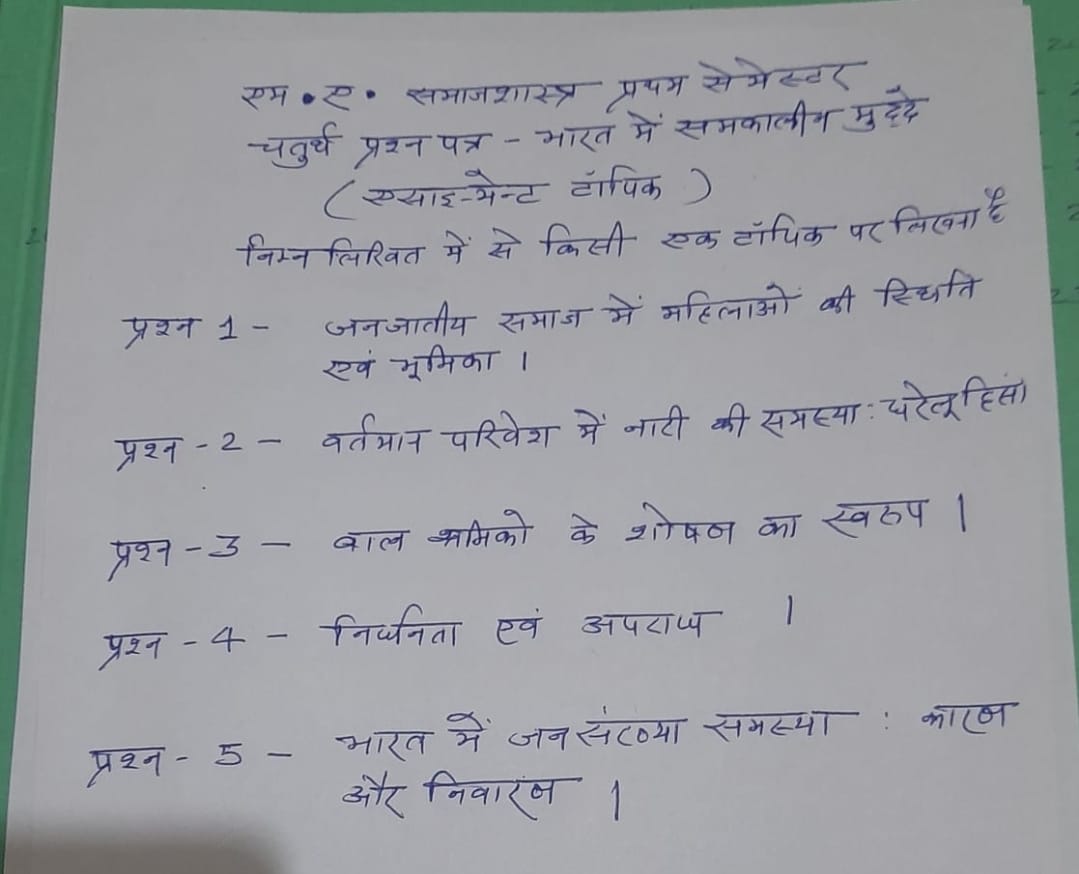 एम•ए• समाजशास्त्र प्रथम सेमेस्टर
चतुर्थ प्रश्न पत्र - भारत में समकालीन मुद्दे
(एसाइन्मेन्ट टॉपिक)
निम्नलिखित में से किसी एक टॉपिक पर लिखना है
प्रश्न 1 - जनजातीय समाज में महिलाओं की स्थिति
एवं भूमिका ।
प्रश्न - 2 - वर्तमान परिवेश में नारी की समस्या : घरेलू हिंसा
प्रश्न - 3 - बाल श्रमिको के शोषण का स्वरुप ।
प्रश्न - 4 - निर्धनता एवं अपराध ।
प्रश्न - 5 - भारत में जनसंख्या समस्या : कारण
और निवारण ।